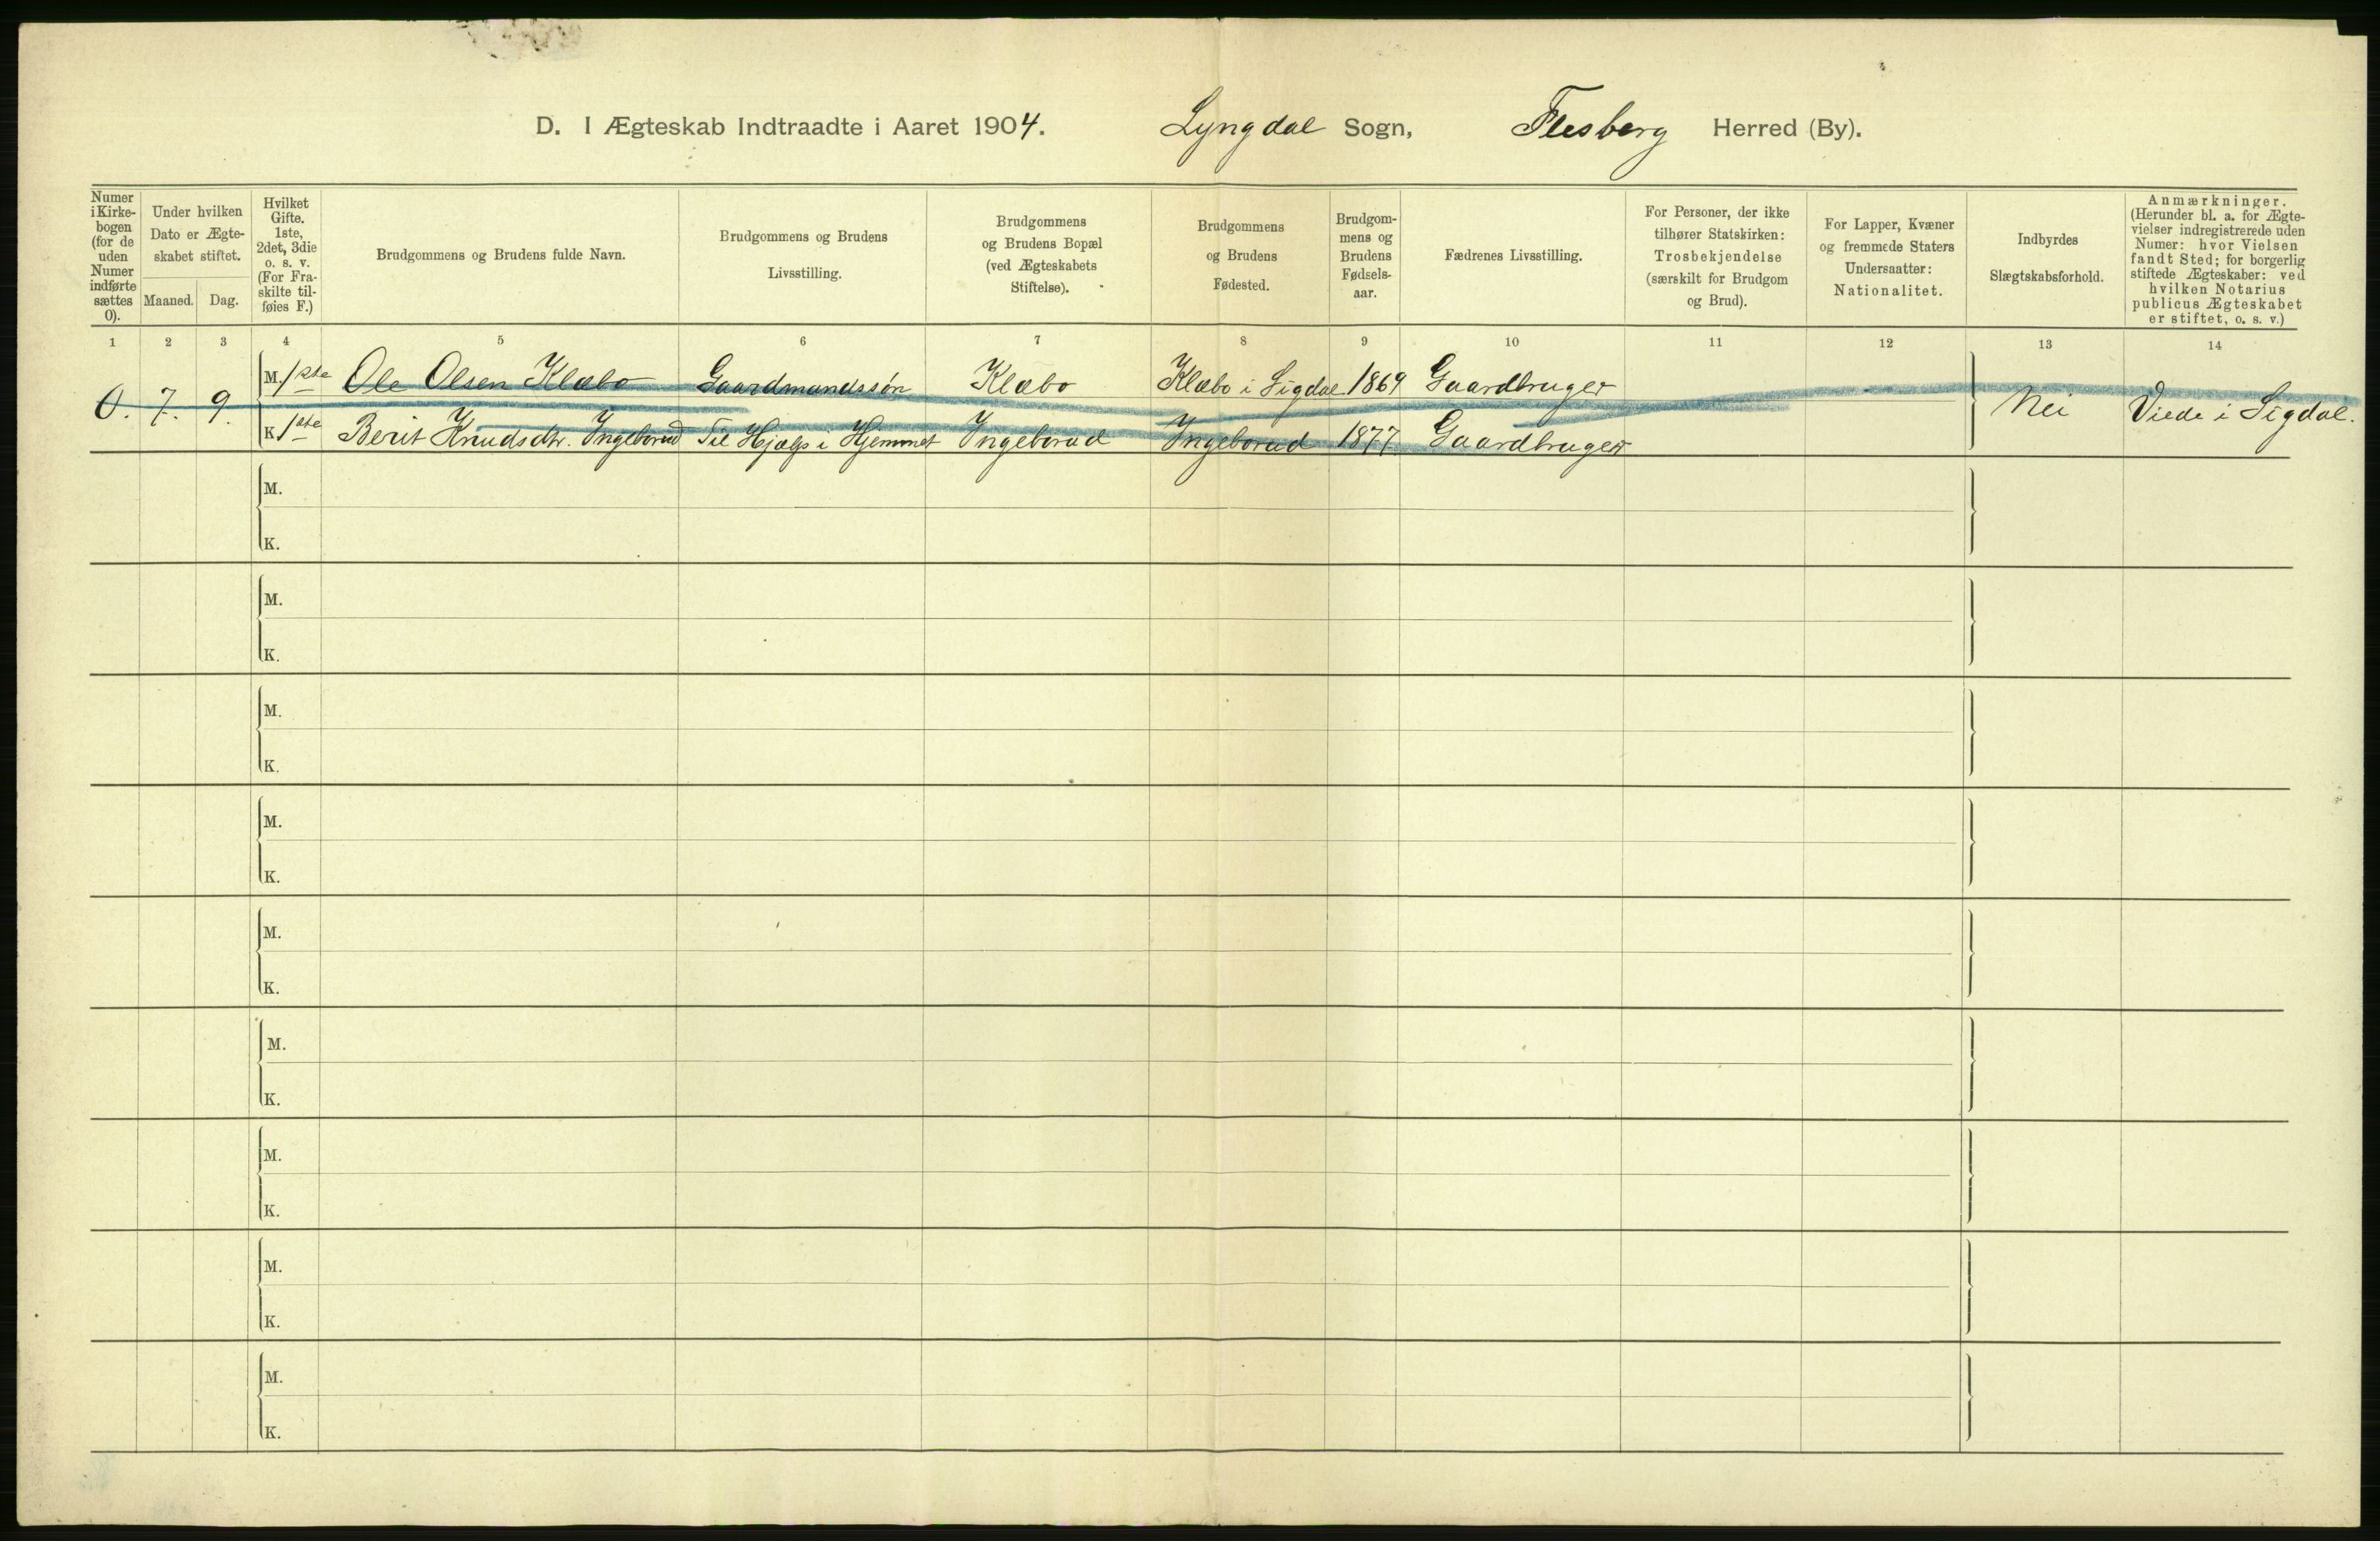 D. I Ægteskab Indtraadte i Aaret 1904. Lyngdal Sogn, Flesberg Herred (By).
Numer i Kirke-bogen (for de uden Numer indførte sættes 0).
Under hvilken Dato er Ægte-skabet stiftet.
Maaned. Dag.
Hvilket Gifte. 1ste, 2det, 3die o. s. v. (For Fra-skilte til-føies F.)
Brudgommens og Brudens fulde Navn.
Brudgommens og Brudens Livsstilling.
Brudgommens og Brudens Bopæl (ved Ægteskabets Stiftelse).
Brudgommens og Brudens Fødested.
Brudgom-mens og Brudens Fødsels-aar.
Fædrenes Livsstilling.
For Personer, der ikke tilhører Statskirken: Trosbekjendelse (særskilt for Brudgom og Brud).
For Lapper, Kvæner og fremmede Staters Undersaatter: Nationalitet.
Indbyrdes Slægtskabsforhold.
Anmærkninger. (Herunder bl. a. for Ægte-vielser indregistrerede uden Numer: hvor Vielsen fandt Sted; for borgerlig stiftede Ægteskaber: ved hvilken Notarius publicus Ægteskabet er stiftet, o. s. v.)
1 2 3 4 5 6 7 8 9 10 11 12 13 14
M. 1ste Ole Olsen Klæbo Gaardmandssøn Klæbo Klæbo i Sigdal 1869 Gaardbruger
0. 7. 9. Nei Viede i Sigdal.
K. 1ste Berit Knudsdtr. Ingeborud Til Hjælp i Hjemmet Ingeborud Ingeborud 1877 Gaardbruger
M.
K.
M.
K.
M.
K.
M.
K.
M.
K.
M.
K.
M.
K.
M.
K.
M.
K.